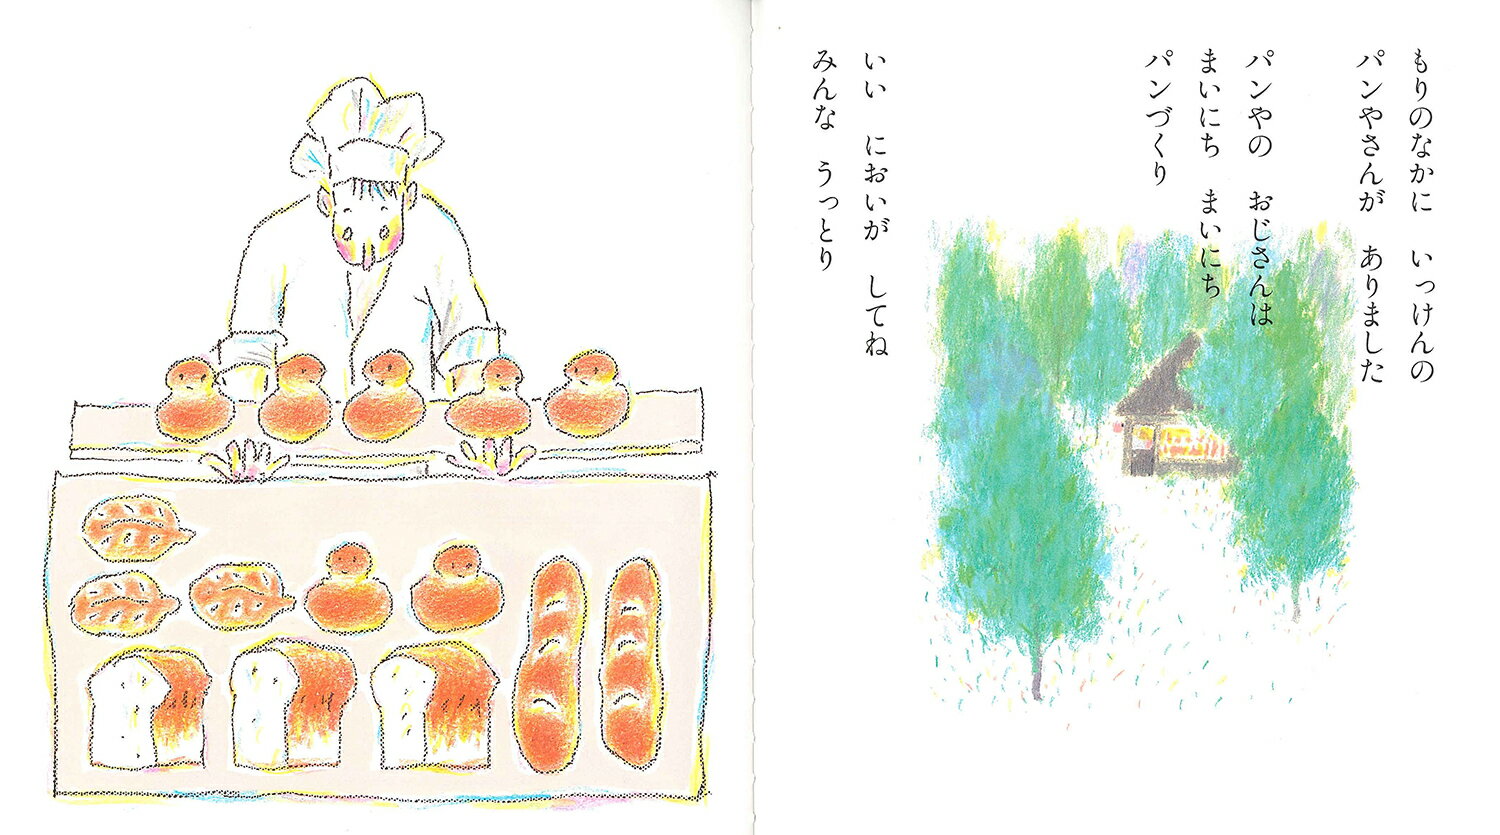 もりのなかに　いっけんの
パンやさんが　ありました
パンやの　おじさんは
まいにち　まいにち
パンづくり
いい　においが　してね
みんな　うっとり